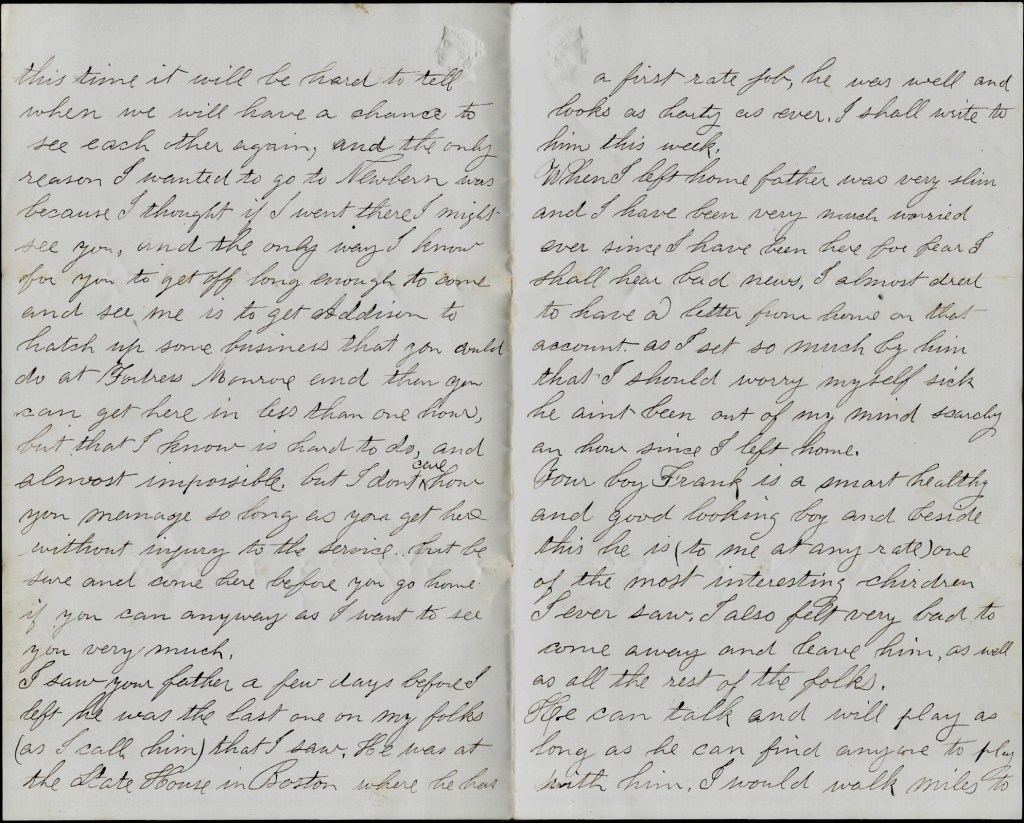 this time it will be hard to tell
when we will have a chance to
see each other again, and the only
reason I wanted to go to Newbern was
because I thought if I went there I might
see you, and the only way I know
for you to get off long enough to come
and see me is to get Addison to
hatch up some business that you could
do at Fortress Monroe and then you
can get here in less than one hour,
but that I know is hard to do, and
almost impossible. but I dont care how
you mennage so long as you get here
without injury to the service. but be
sure and come here before you go home
if you can anyway as I want to see
you very much.
I saw your father a few days before I
left he was the last one on my folks
(as I call him) that I saw. He was at
the State House in Boston where he has
a first rate job, he was well and
looks as harty as ever. I shall write to
him this week.
When I left home father was very slim
and I have been very much worried
ever since I have been here for fear I
shall hear bad news. I almost dred
to have a letter from home on that
account. as I set so much by him
that I should worry myself sick
he aint been out of my mind scarcly
an hour since I left home.
Your boy Frank is a smart healthy
and good looking boy and beside
this he is (to me at any rate) one
of the most interesting chirdren
I ever saw. I also felt very bad to
come away and leave him, as well
as all the rest of the folks.
He can talk and will play as
long as he can find anyone to play
with him. I would walk miles to